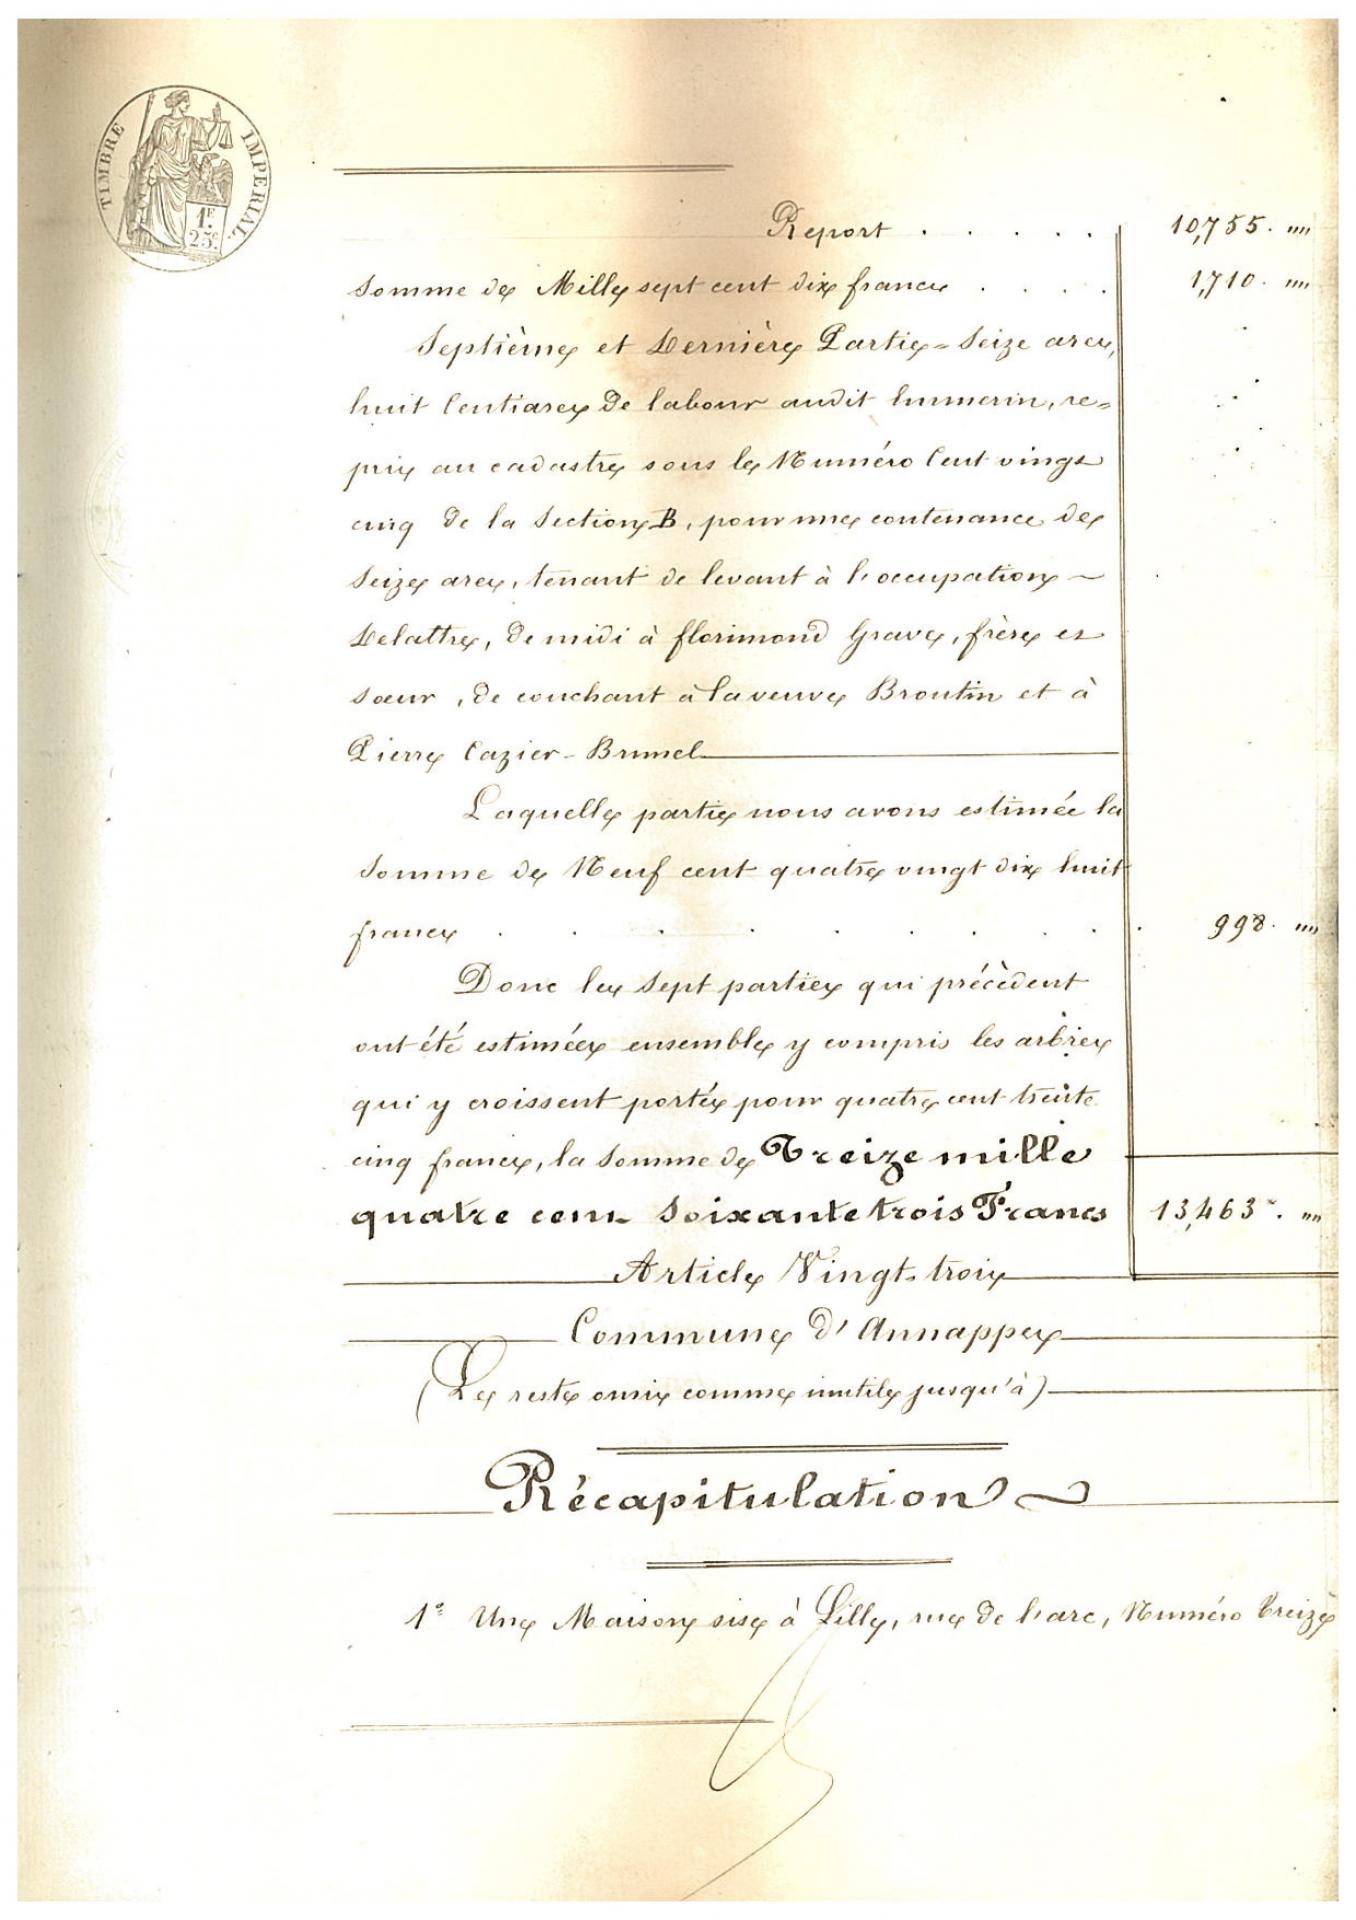 TIMBRE IMPERIAL.
1F.
25c.
Report . . . . . 10,755. ""
somme de Mille sept cent dix francs . . . . 1,710. ""
Septième et Dernière Partie = Seize ares,
huit Centiares de labour audit Ennmerin, re=
pris au cadastre sous le Numéro Cent vingt
cinq de la Section B, pour une contenance de
Seize ares, tenant de levant à l'occupation
Delattre, de midi à florimond Grave, frère et
soeur, de couchant à la veuve Broutin et à
Pierre Cazier-Brunel
Laquelle partie nous avons estimée la
somme de Neuf cent quatre vingt dix huit
francs . . . . . . . . 998. ""
Donc les Sept parties qui précèdent
ont été estimées ensemble y compris les arbres
qui y croissent portés pour quatre cent trente
cinq francs, la somme de Treize mille
quatre cent Soixante trois Francs 13,463. ""
Article Vingt-trois
Commune d'Annappes
(Le reste omis comme inutile jusqu'à)
Récapitulation
1° Une Maison sise à Lille, rue de l'arc, Numéro treize